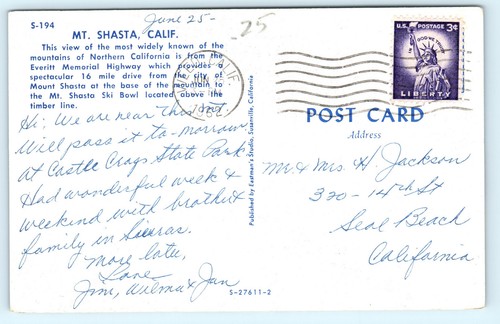 June 25-
25
S-194
MT. SHASTA, CALIF.
This view of the most widely known of the
mountains of Northern California is from the
Everitt Memorial Highway which provides a
spectacular 16 mile drive from the city of
Mount Shasta at the base of the mountain to
the Mt. Shasta Ski Bowl located above the
timber line.
Hi: We are near this mt.
Will pass it to-morrow
At Castle Crags State Park
Had wonderful week &
weekend with brother &
family in Sierras.
more later,
Love
Jim, Wilma & Jan
Published by Eastman's Studio, Susanville, California
S-27611-2
U.S. POSTAGE 3¢
IN GOD WE TRUST
LIBERTY
CALIF.
POST CARD
Address
Mr & Mrs H Jackson
320-14th St
Seal Beach
California